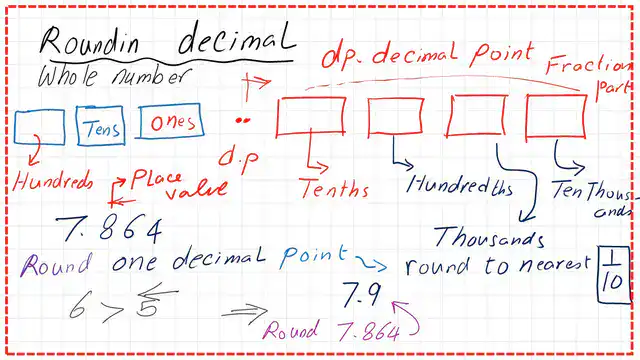 Roundin decimal
dp. decimal point
Fraction part
Whole number
Tens
ones
d.p
Hundreds
Place value
Tenths
Hundredths
Thousands
Ten Thousands
7.864
Round one decimal point
round to nearest 1/10
7.9
6 > 5
Round 7.864